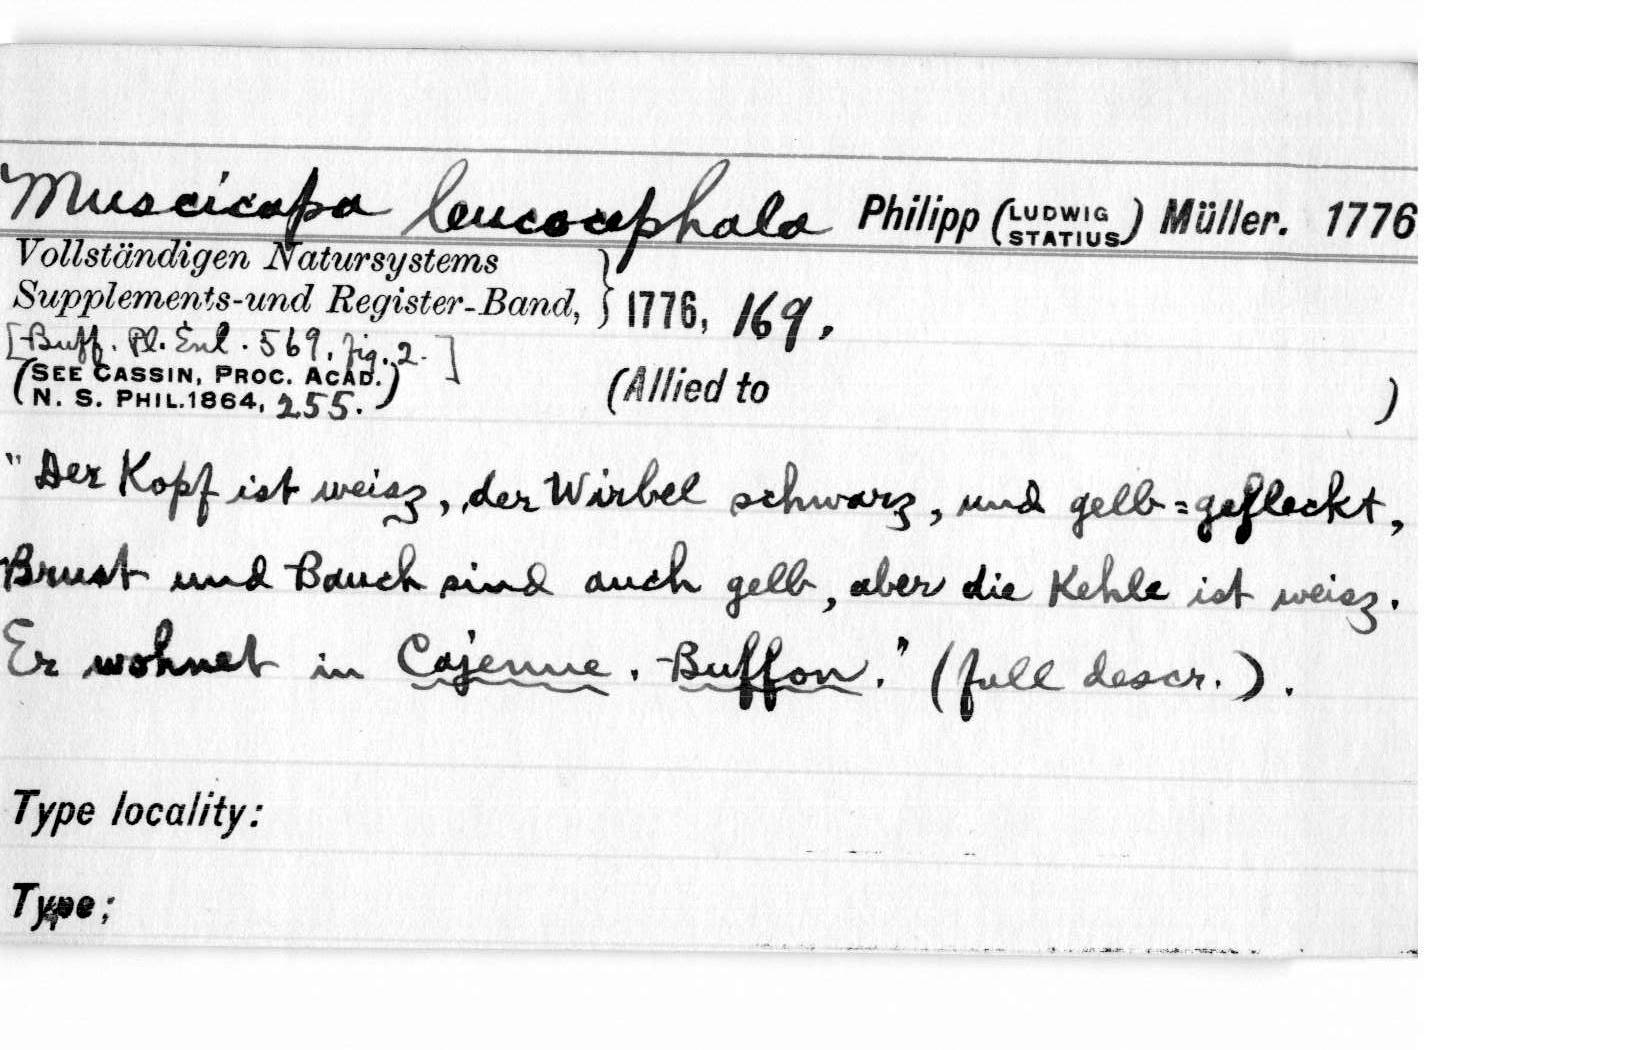 Muscicapa leucocephala Philipp (LUDWIG STATIUS) Müller. 1776
Vollständigen Natursystems
Supplements-und Register-Band, } 1776, 169.
[Buff. Pl. Enl. 569, fig. 2.]
(SEE CASSIN, PROC. ACAD.
N. S. PHIL. 1864, 255.) (Allied to )
"Der Kopf ist weisz, der Wirbel schwarz, und gelb=gefleckt,
Brust und Bauch sind auch gelb, aber die Kehle ist weisz.
Er wohnet in Cajenne. Buffon." (full descr.).
Type locality:
Type: